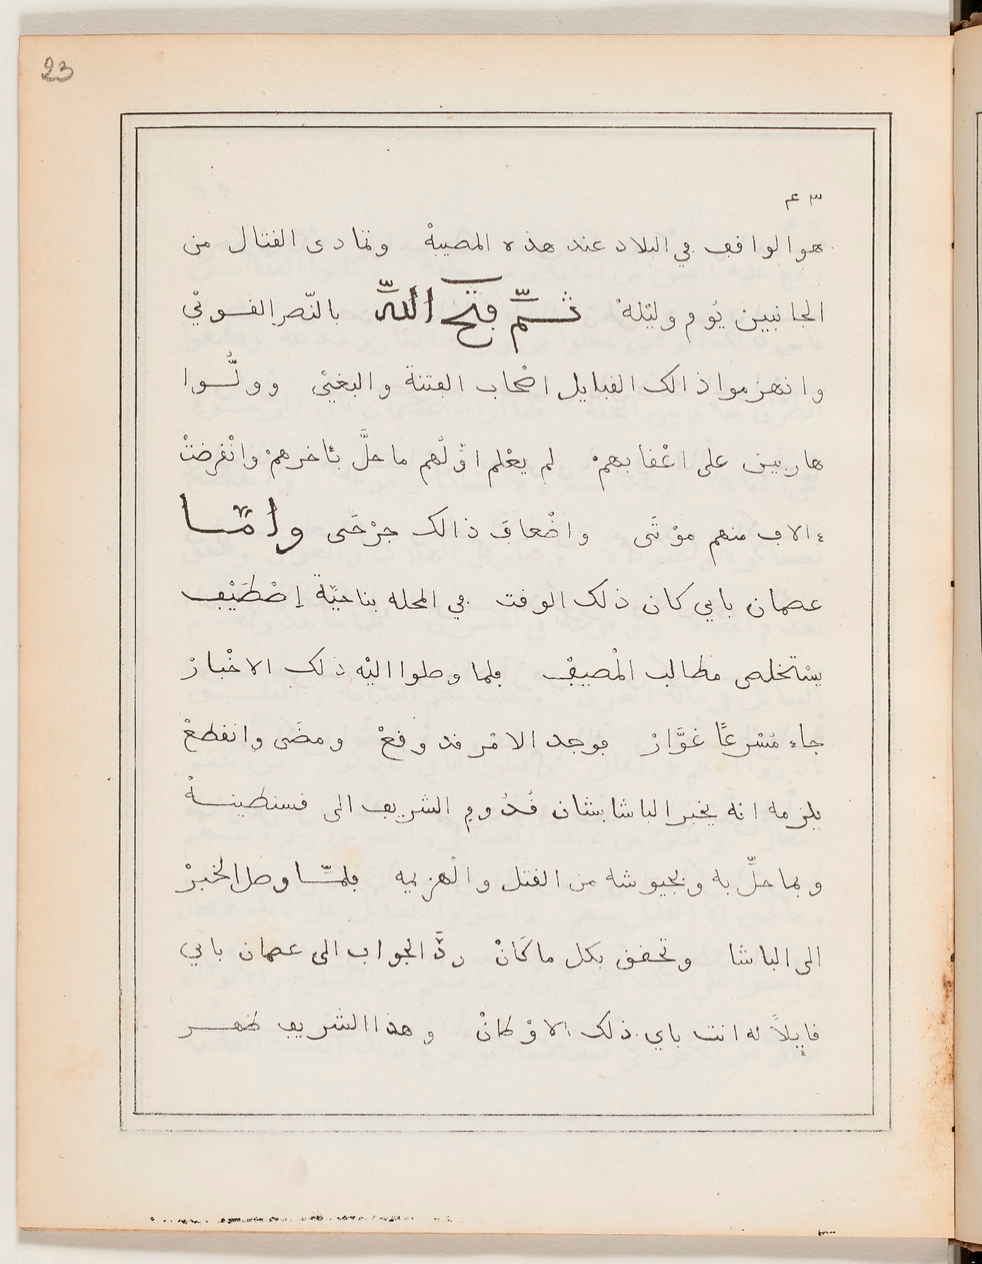 23
٢٣
هوا لواقف في البلاد عند هذه المصيبة وتمادى القتال من
الجانبين يَوم وليْلة ثمّ فتَح اللّه بالنّصر القـوي
وانهزموا ذالك القبايل اصْحاب الفتنة والبغيْ وولُّـوا
هاربين على اعْقابهمْ لم يعْلم اوّلهم ما حلَّ بئاخرهمْ وانْقرضتْ
ءالاف منهم موْتَى واضْعافَ ذالك جرْحَى وامّـا
عصمان باي كان ذلك الوقت في المحله بناحيّة إصْطَيْف
يسْتخلص مطالب الْمصيفْ فلما وصلوا اليْه ذلك الاخْبارْ
جاء مُسْرعًا غوَّارْ فوجد الامْر قد وقعْ ومضَى وانقطعْ
يلزمه انه يخبر الباشا بشان قُدُوم الشريف الى قسنطينـةْ
وبما حلِّ به وبجيوشه من القتل والْهزيمه فلمّـا وصل الخبرْ
الى الباشا وتحقق بكل ما كَانْ ردَّ الجواب الى عصمان باي
قايلاً له انت باي ذلك الاوْطانْ وهذا الشريف ظهـر